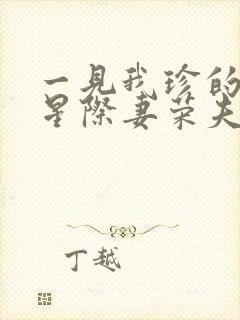 一见我珍的
星际妻荣夫
丁越